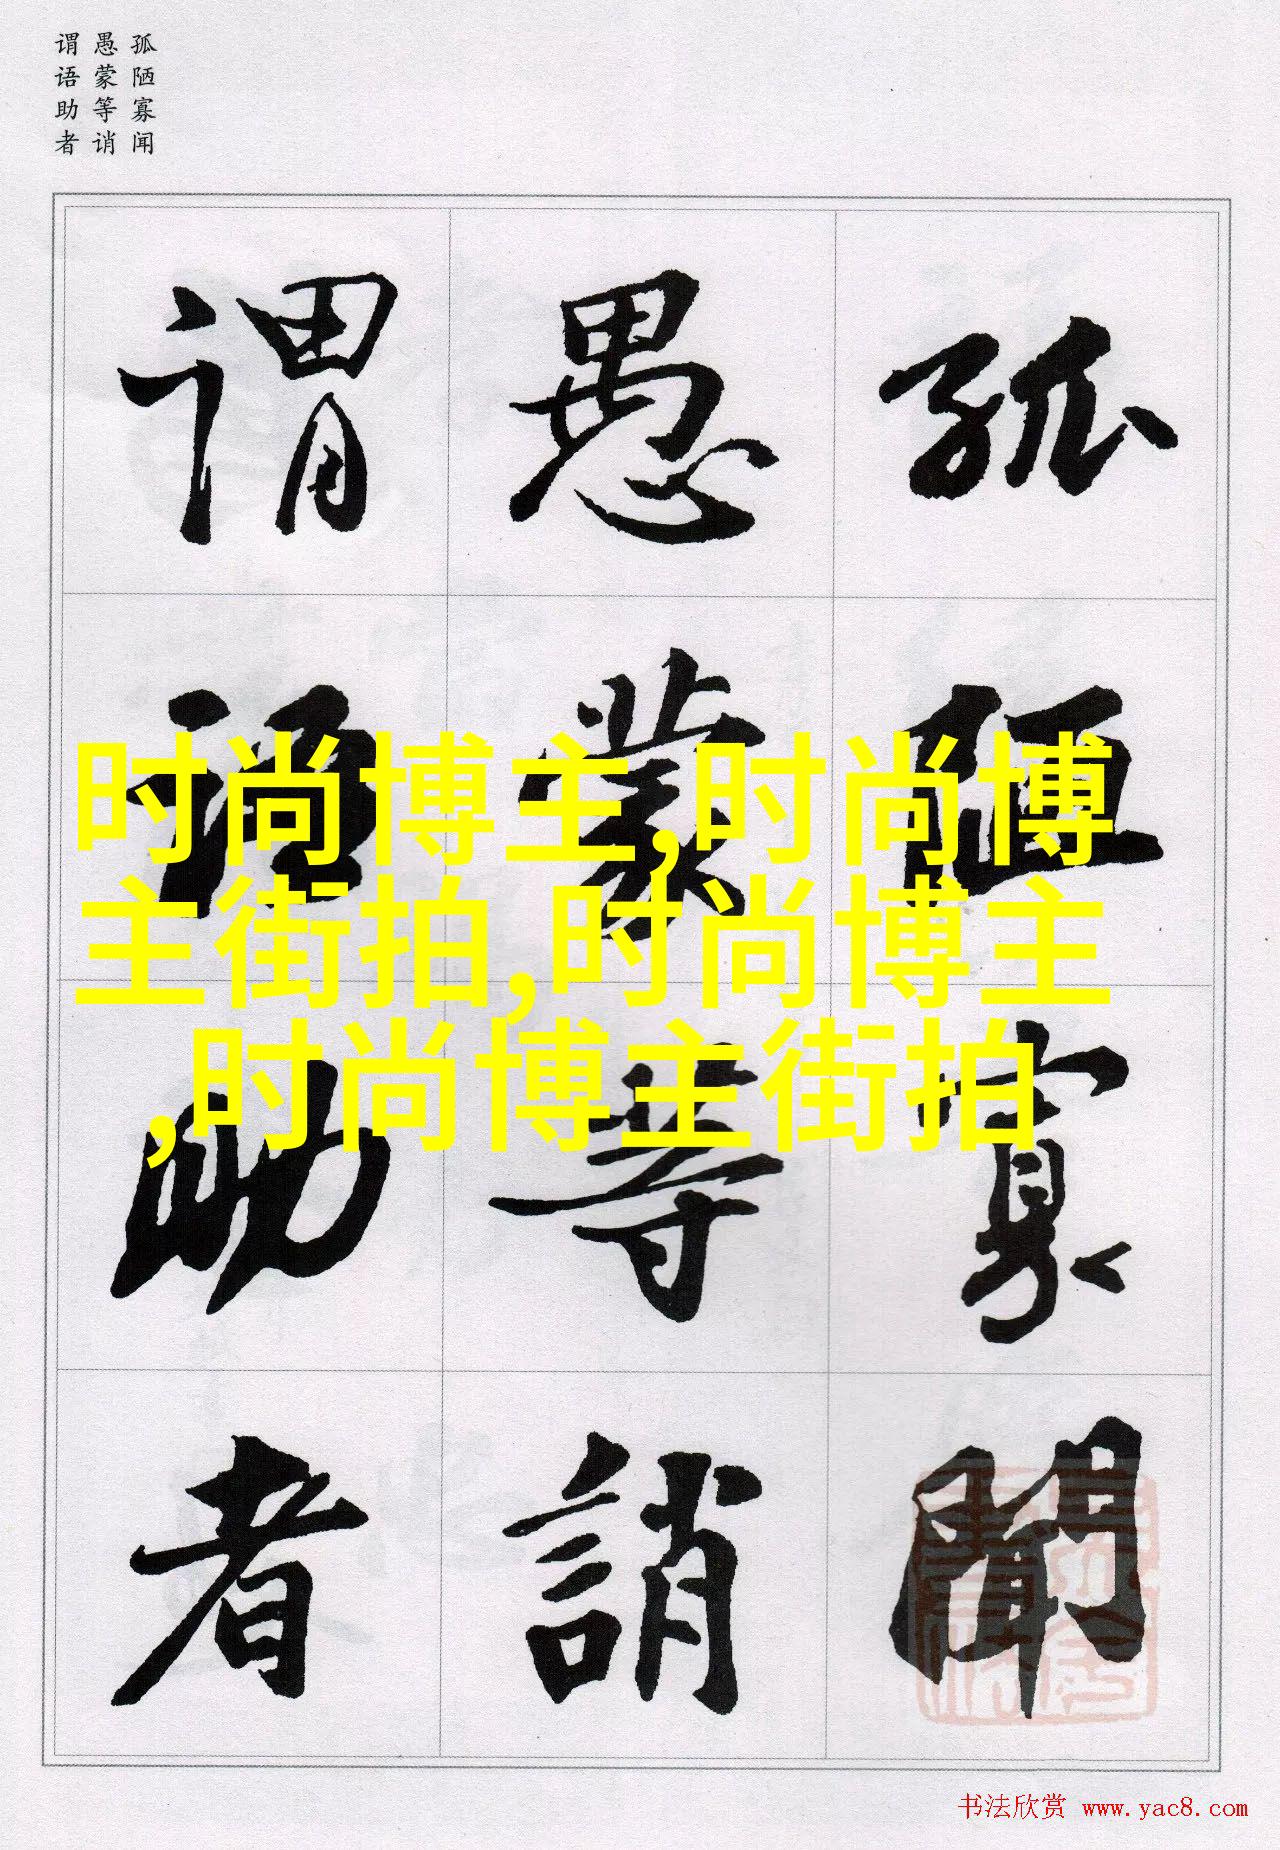 孤陋寡闻
愚蒙等诮
谓语助者
孤陋寡聞
愚蒙等誚
谓语助者
时尚博主,时尚博
主街拍,时尚博主
,时尚博主街拍
书法欣赏 www.yac8.com